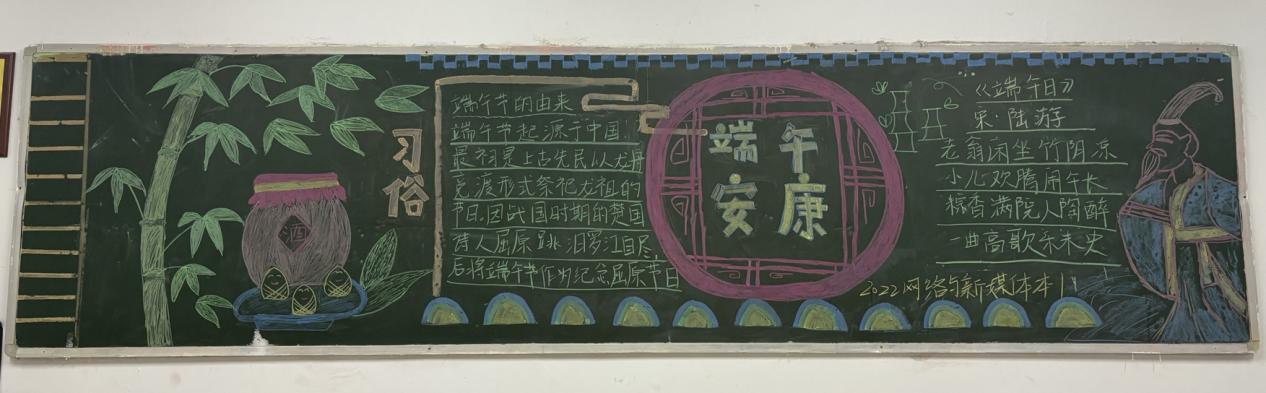 习俗
酒
端午节的由来
端午节起源于中国，
最初是上古先民以龙舟
竞渡形式祭祀龙祖的
节日。因战国时期的楚国
诗人屈原跳汨罗江自尽，
后将端午节作为纪念屈原节日
端午
安康
《端午日》
宋·陆游
老翁闲坐竹阴凉
小儿欢腾闹午长
粽香满院人陶醉
一曲高歌乐未央
2022网络与新媒体本1